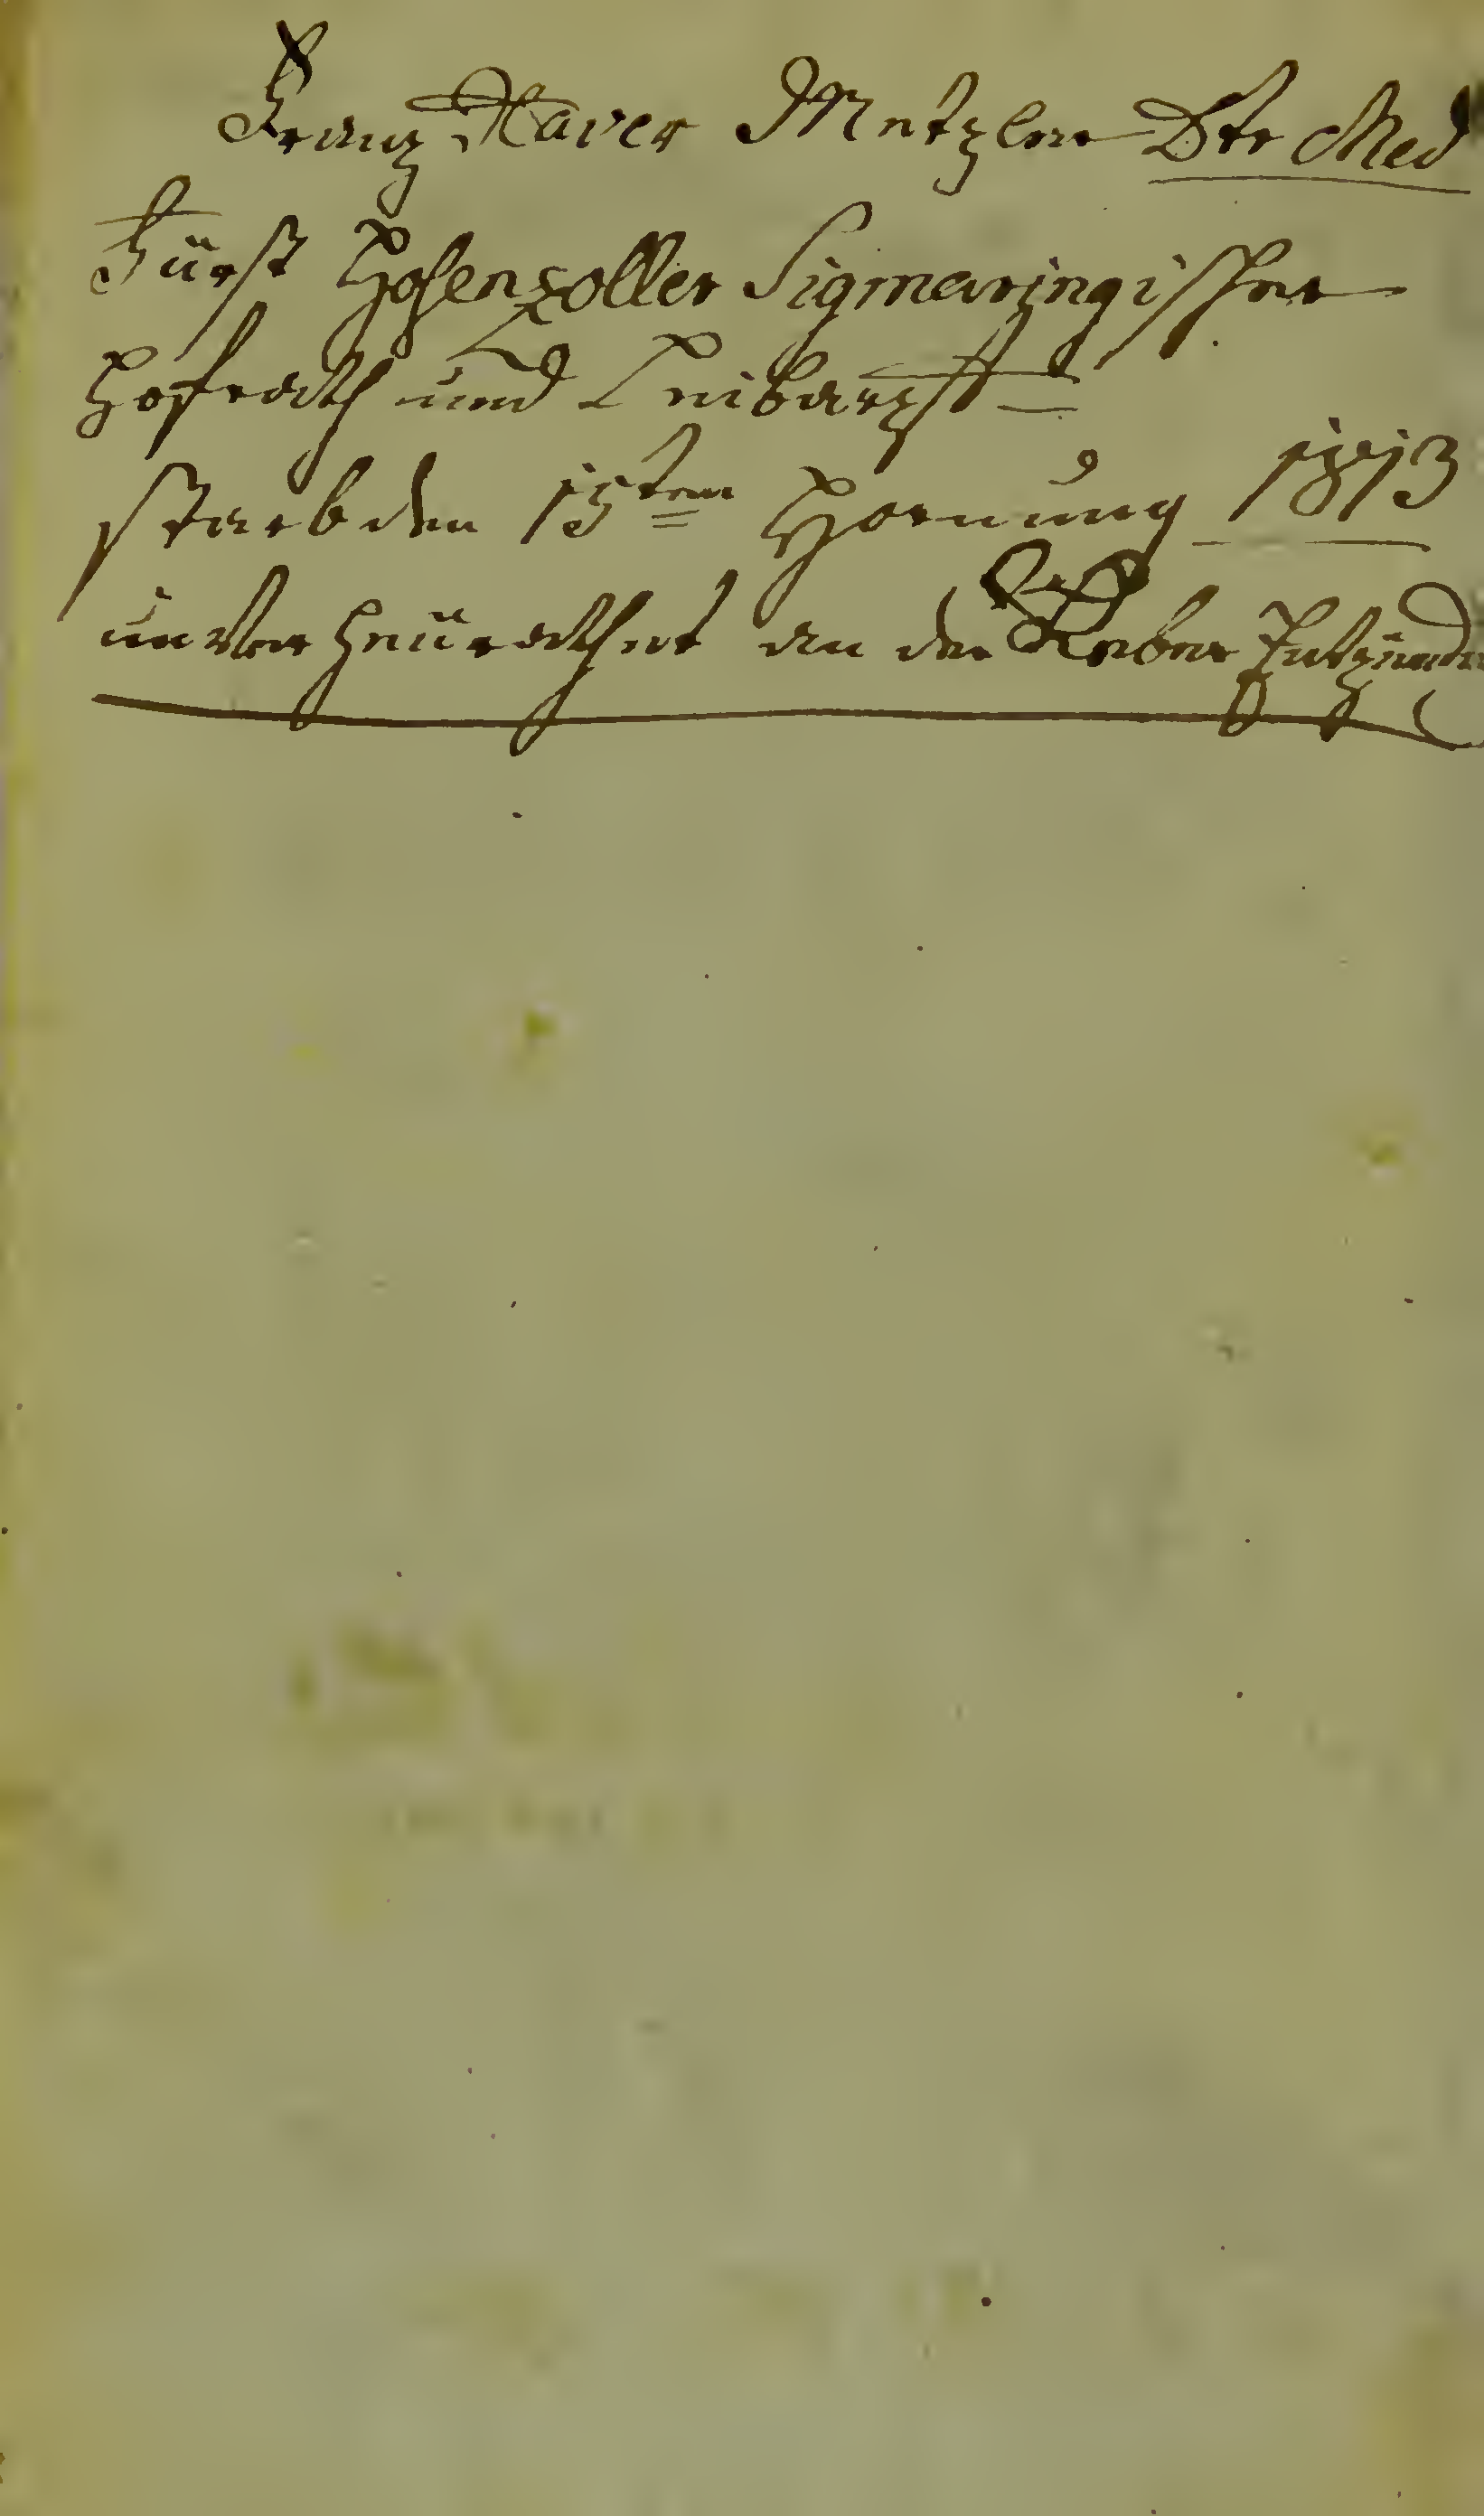 Franz Xaver Metzler Dtr Med
Fürst Hohenzoller Sigmaringischer
Hofrath und Leibarzt
starb den 15ten Hornung 1813
unverheürathet an der Leber Entzündu